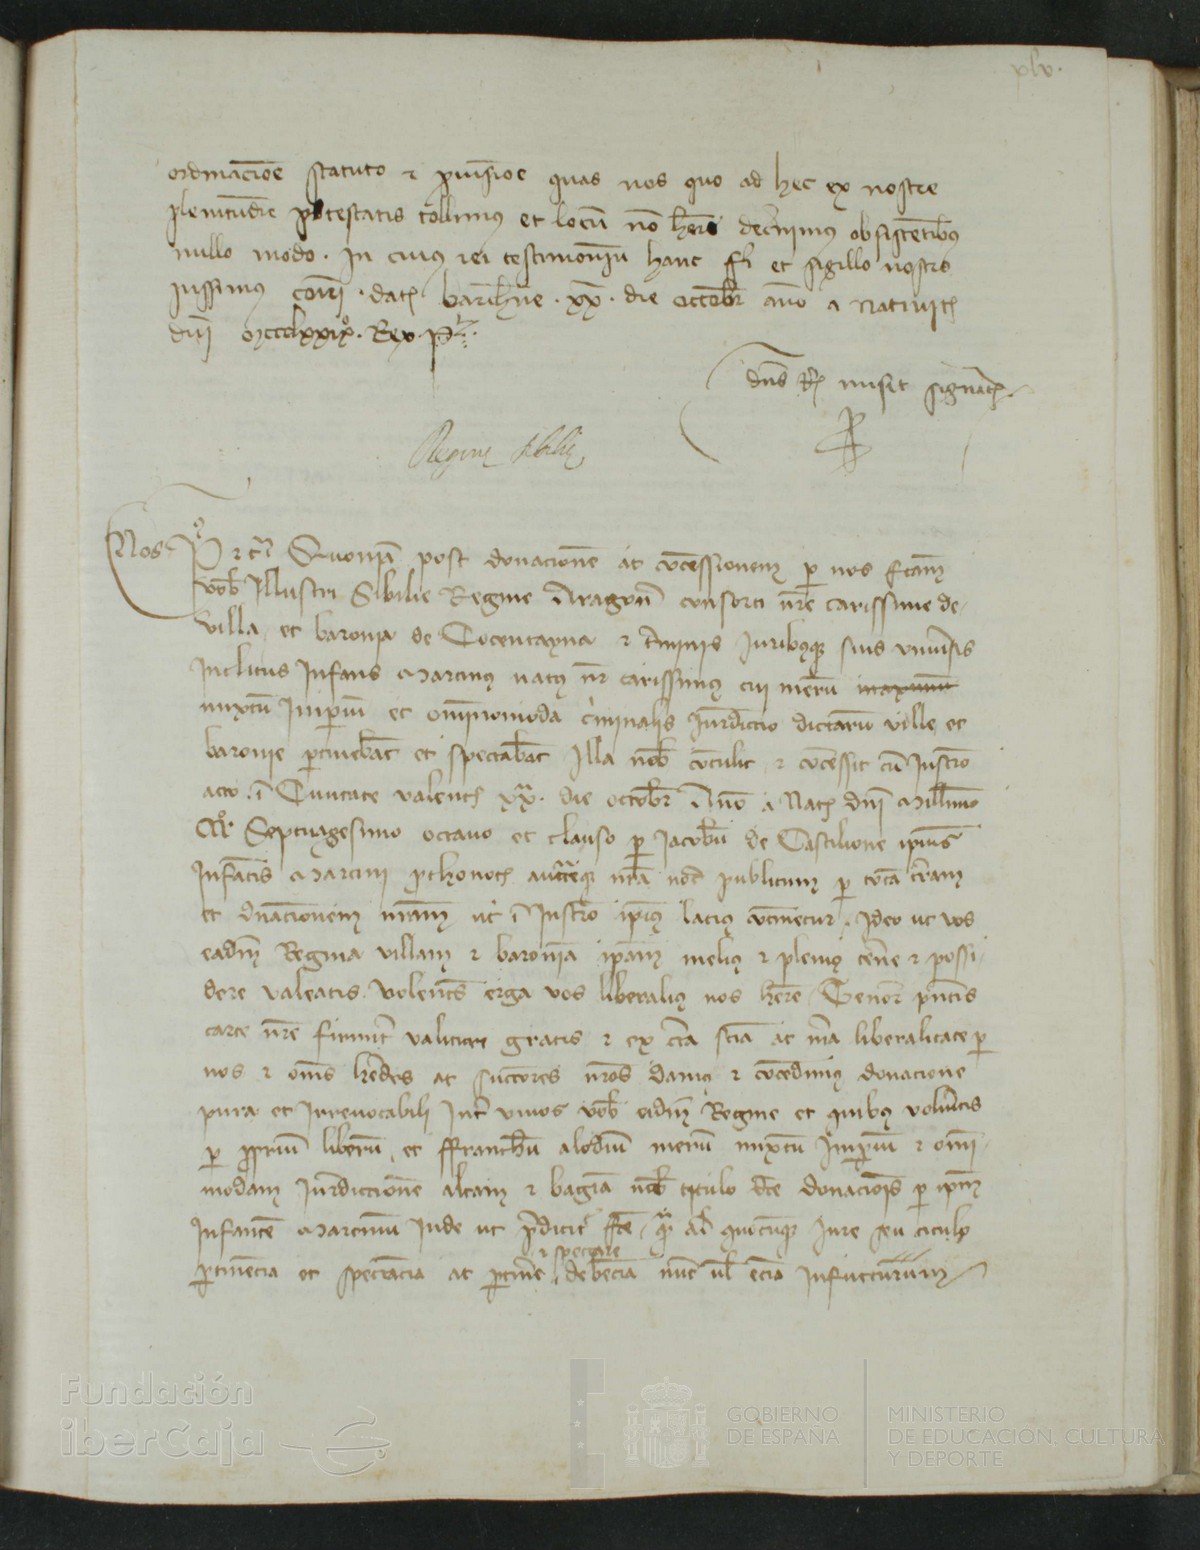 xlv.
ordinacione statuto et provisione quas nos quo ad hec ex nostre
plenitudine potestatis tollimus et locum non habere decernimus obsistentibus
nullo modo. In cuius rei testimonium hanc fieri et sigillo nostro
iussimus Dat. Barchne. xx. die octobr anno a nativit
dni mccclxxix. Rex P.
dns Rex misit signat
Regine Sibilie
Nos P. etc. Quoniam post donacionem ac concessionem per nos factam
vob Illustri Sibilie Regine Aragon consorti nre carissime de
villa et baronia de Cocentayna et terminis Iuribusque suis universis
Inclitus Infans Martinus natus nr carissimus cui merum
mixtum Imperium et omnimoda criminalis Iurdiccio dictarum ville et
baronie pertinebat et spectabat Illa nob contulit et concessit cum Instro
acto in Civitate Valent xx. die octobr Anno a Nat dni Millimo
CCC Septuagesimo octavo et clauso per Iacobum de Castilione ipius
Infantis Martini prothonot auctteque nra not publicum per totam terram
et dnacionem nram ut in Instro ipius lacius continetur. Ideo ut vos
eadem Regina villam et baroniam ipam melius et plenius tenere et possi
dere valeatis. Volentes erga vos liberalius nos habere Tenore pntis
carte nre firmiter valiture gratis et ex certa sciencia ac mera liberalitate per
nos et omnes heredes ac successores nros damus et concedimus donacione
pura et Irrevocabili Inter vivos vob eidem Regine et quibus volueritis
per proprium liberum et ffranchum alodium merum mixtum Imperium et omni
modam Iurdiccionem altam et bagiam nob titulo dicte donacionis per ipm
Infantem Martinum Inde ut predicitur facte quocumque Iure seu titulo
et spectare
pertinencia et spectancia ac pertinere debencia nunc vel eciam Infuturum
Fundación
iberCaja
GOBIERNO
DE ESPAÑA
MINISTERIO
DE EDUCACIÓN, CULTURA
Y DEPORTE